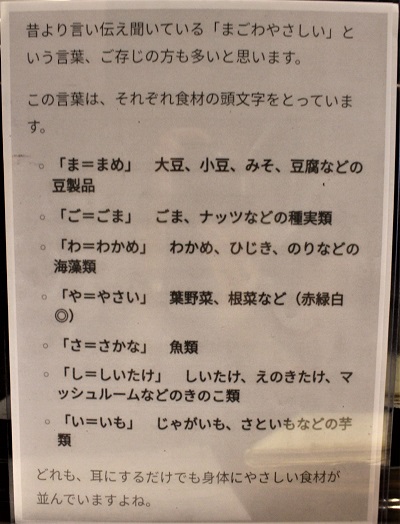 昔より言い伝え聞いている「まごわやさしい」と
いう言葉、ご存じの方も多いと思います。
この言葉は、それぞれ食材の頭文字をとっていま
す。
◦ 「ま＝まめ」　大豆、小豆、みそ、豆腐などの
豆製品
◦ 「ご＝ごま」　ごま、ナッツなどの種実類
◦ 「わ＝わかめ」　わかめ、ひじき、のりなどの
海藻類
◦ 「や＝やさい」　葉野菜、根菜など（赤緑白
◎）
◦ 「さ＝さかな」　魚類
◦ 「し＝しいたけ」　しいたけ、えのきたけ、マ
ッシュルームなどのきのこ類
◦ 「い＝いも」　じゃがいも、さといもなどの芋
類
どれも、耳にするだけでも身体にやさしい食材が
並んでいますよね。